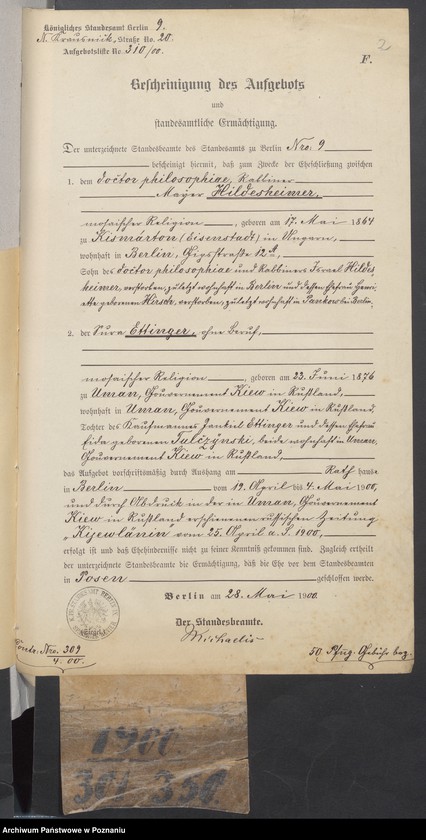 Königliches Standesamt Berlin 9.
N. Krausnick-Straße No. 20.
Aufgebotsliste No. 310/00.
2
F.
Bescheinigung des Aufgebots
und
standesamtliche Ermächtigung.
Der unterzeichnete Standesbeamte des Standesamts zu Berlin Nro. 9
bescheinigt hiermit, daß zum Zwecke der Eheschließung zwischen
1. dem doctor philosophiae, Rabbiner
Mayer Hildesheimer,
mosaischer Religion, geboren am 17. Mai 1864
zu Kismárton (Eisenstadt) in Ungarn,
wohnhaft in Berlin, Gipsstraße 12A,
Sohn des doctor philosophiae und Rabbiners Israel Hildes
heimer, verstorben, zuletzt wohnhaft in Berlin und dessen Ehefrau Henri
ette geborenen Hirsch, verstorben, zuletzt wohnhaft in Pankow bei Berlin.
2. der Sura Ettinger, ohne Beruf,
mosaischer Religion, geboren am 23. Juni 1876
zu Uman, Gouvernement Kiew in Rußland,
wohnhaft in Uman, Gouvernement Kiew in Rußland,
Tochter des Kaufmannes Jankel Ettinger und dessen Ehefrau
Fida geborenen Tulczynski, beide wohnhaft in Uman,
Gouvernement Kiew in Rußland,
das Aufgebot vorschriftsmäßig durch Aushang am Rathhause
in Berlin vom 19. April bis 4. Mai 1900,
und durch Abdruck in der in Uman, Gouvernement
Kiew in Rußland erschienenen russischen Zeitung
„Kijewlänin" vom 25. April a. S. 1900,
erfolgt ist und daß Ehehindernisse nicht zu seiner Kenntniß gekommen sind. Zugleich ertheilt
der unterzeichnete Standesbeamte die Ermächtigung, daß die Ehe vor dem Standesbeamten
in Posen geschlossen werde.
Berlin am 28. Mai 1900.
Der Standesbeamte.
Michaelis
Conto. Nro. 309
4.00.
50 Pfng. Gebühr bez.
1900
301 350
Archiwum Państwowe w Poznaniu